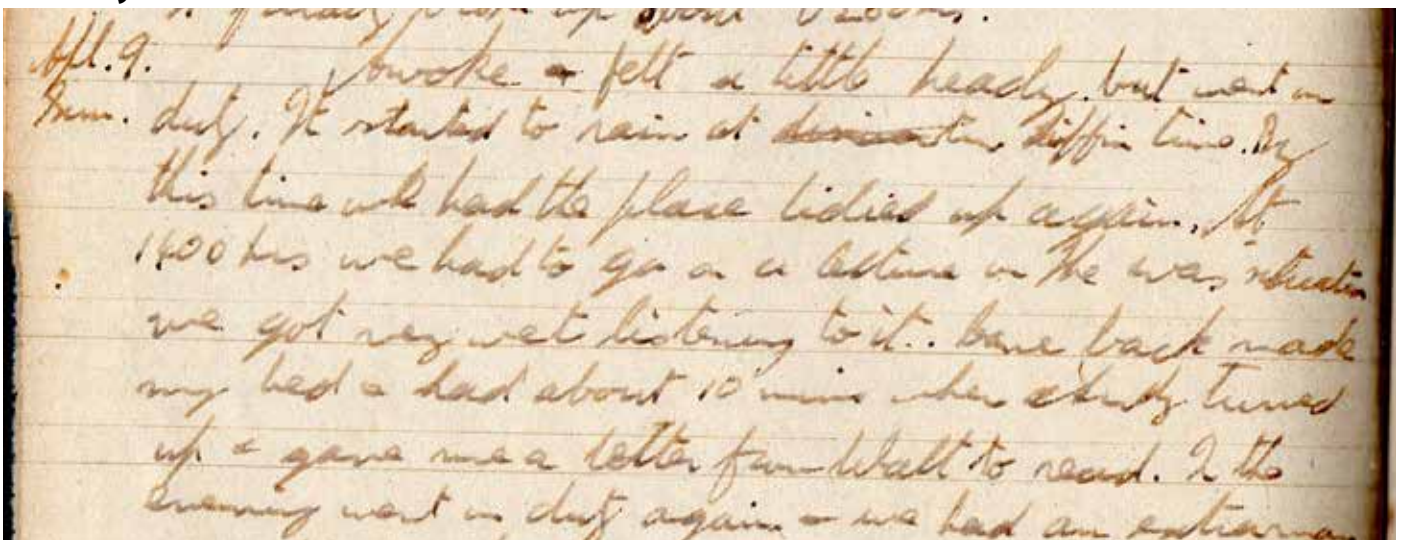 finally broke up about 0200 hrs.
Apl. 9. Awoke & felt a little heady. but went on
Sun. duty. It started to rain at tiffin time. By
this time we had the place tidied up again. At
1400 hrs we had to go on a lecture on the war situation
we got very wet listening to it.. Came back made
my bed & had about 10 mins when turned
up & gave me a letter from Walt to read. In the
evening went on duty again & we had an extra man